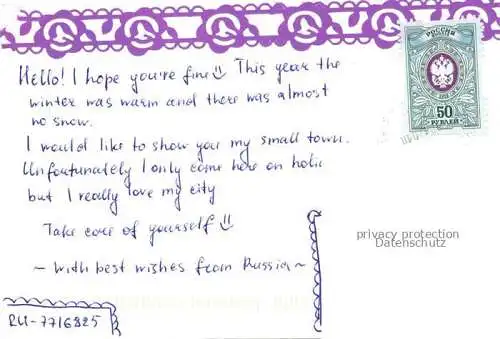 Hello! I hope you're fine This year the
winter was warm and there was almost
no snow.
I would like to show you my small town.
Unfortunately I only come here on holic
but I really love my city
Take care of yourself
~ with best wishes from Russia ~
RU-7716825
РОССИЯ
50
РУБЛЕЙ
privacy protection
Datenschutz